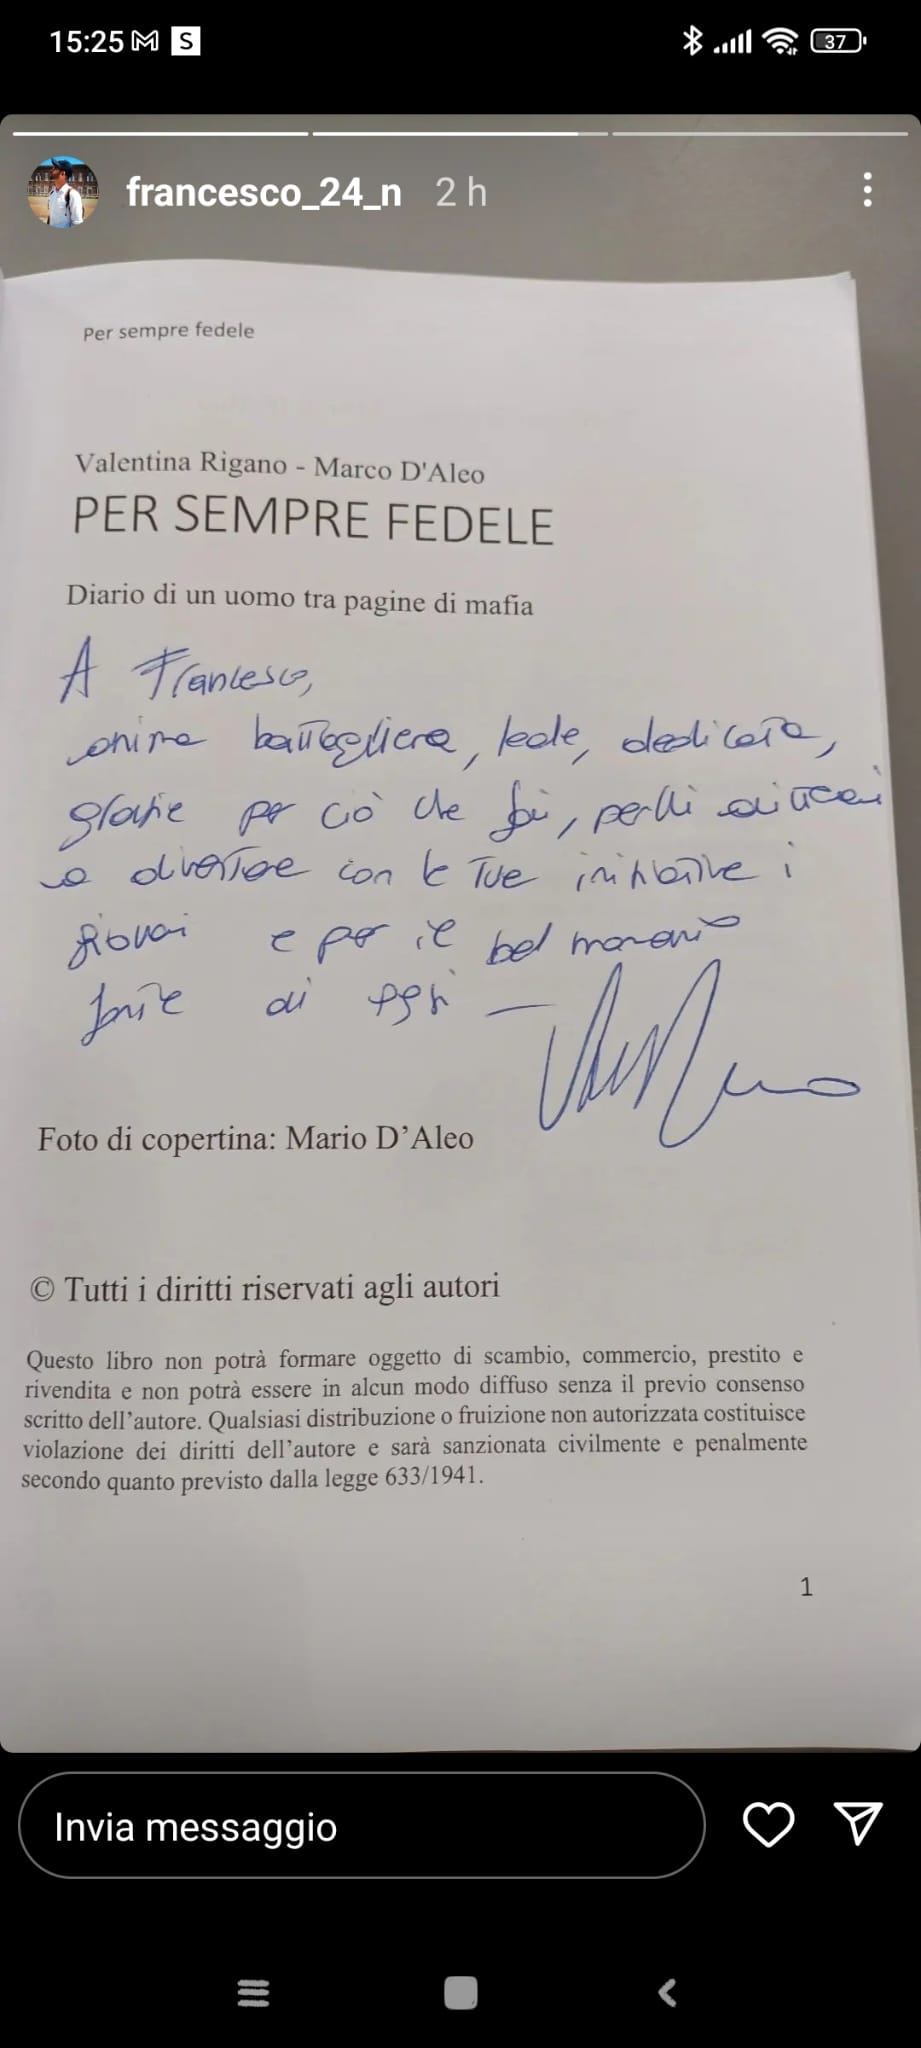 15:25 M S 37
francesco_24_n 2 h
Per sempre fedele
Valentina Rigano - Marco D'Aleo
PER SEMPRE FEDELE
Diario di un uomo tra pagine di mafia
A Francesco,
anima battagliera, leale, dedicata,
grazie per ciò che fai, perché aiuterai
con le tue iniziative i
giovani e per il bel momento
di oggi —
Foto di copertina: Mario D’Aleo
© Tutti i diritti riservati agli autori
Questo libro non potrà formare oggetto di scambio, commercio, prestito e
rivendita e non potrà essere in alcun modo diffuso senza il previo consenso
scritto dell’autore. Qualsiasi distribuzione o fruizione non autorizzata costituisce
violazione dei diritti dell’autore e sarà sanzionata civilmente e penalmente
secondo quanto previsto dalla legge 633/1941.
1
Invia messaggio